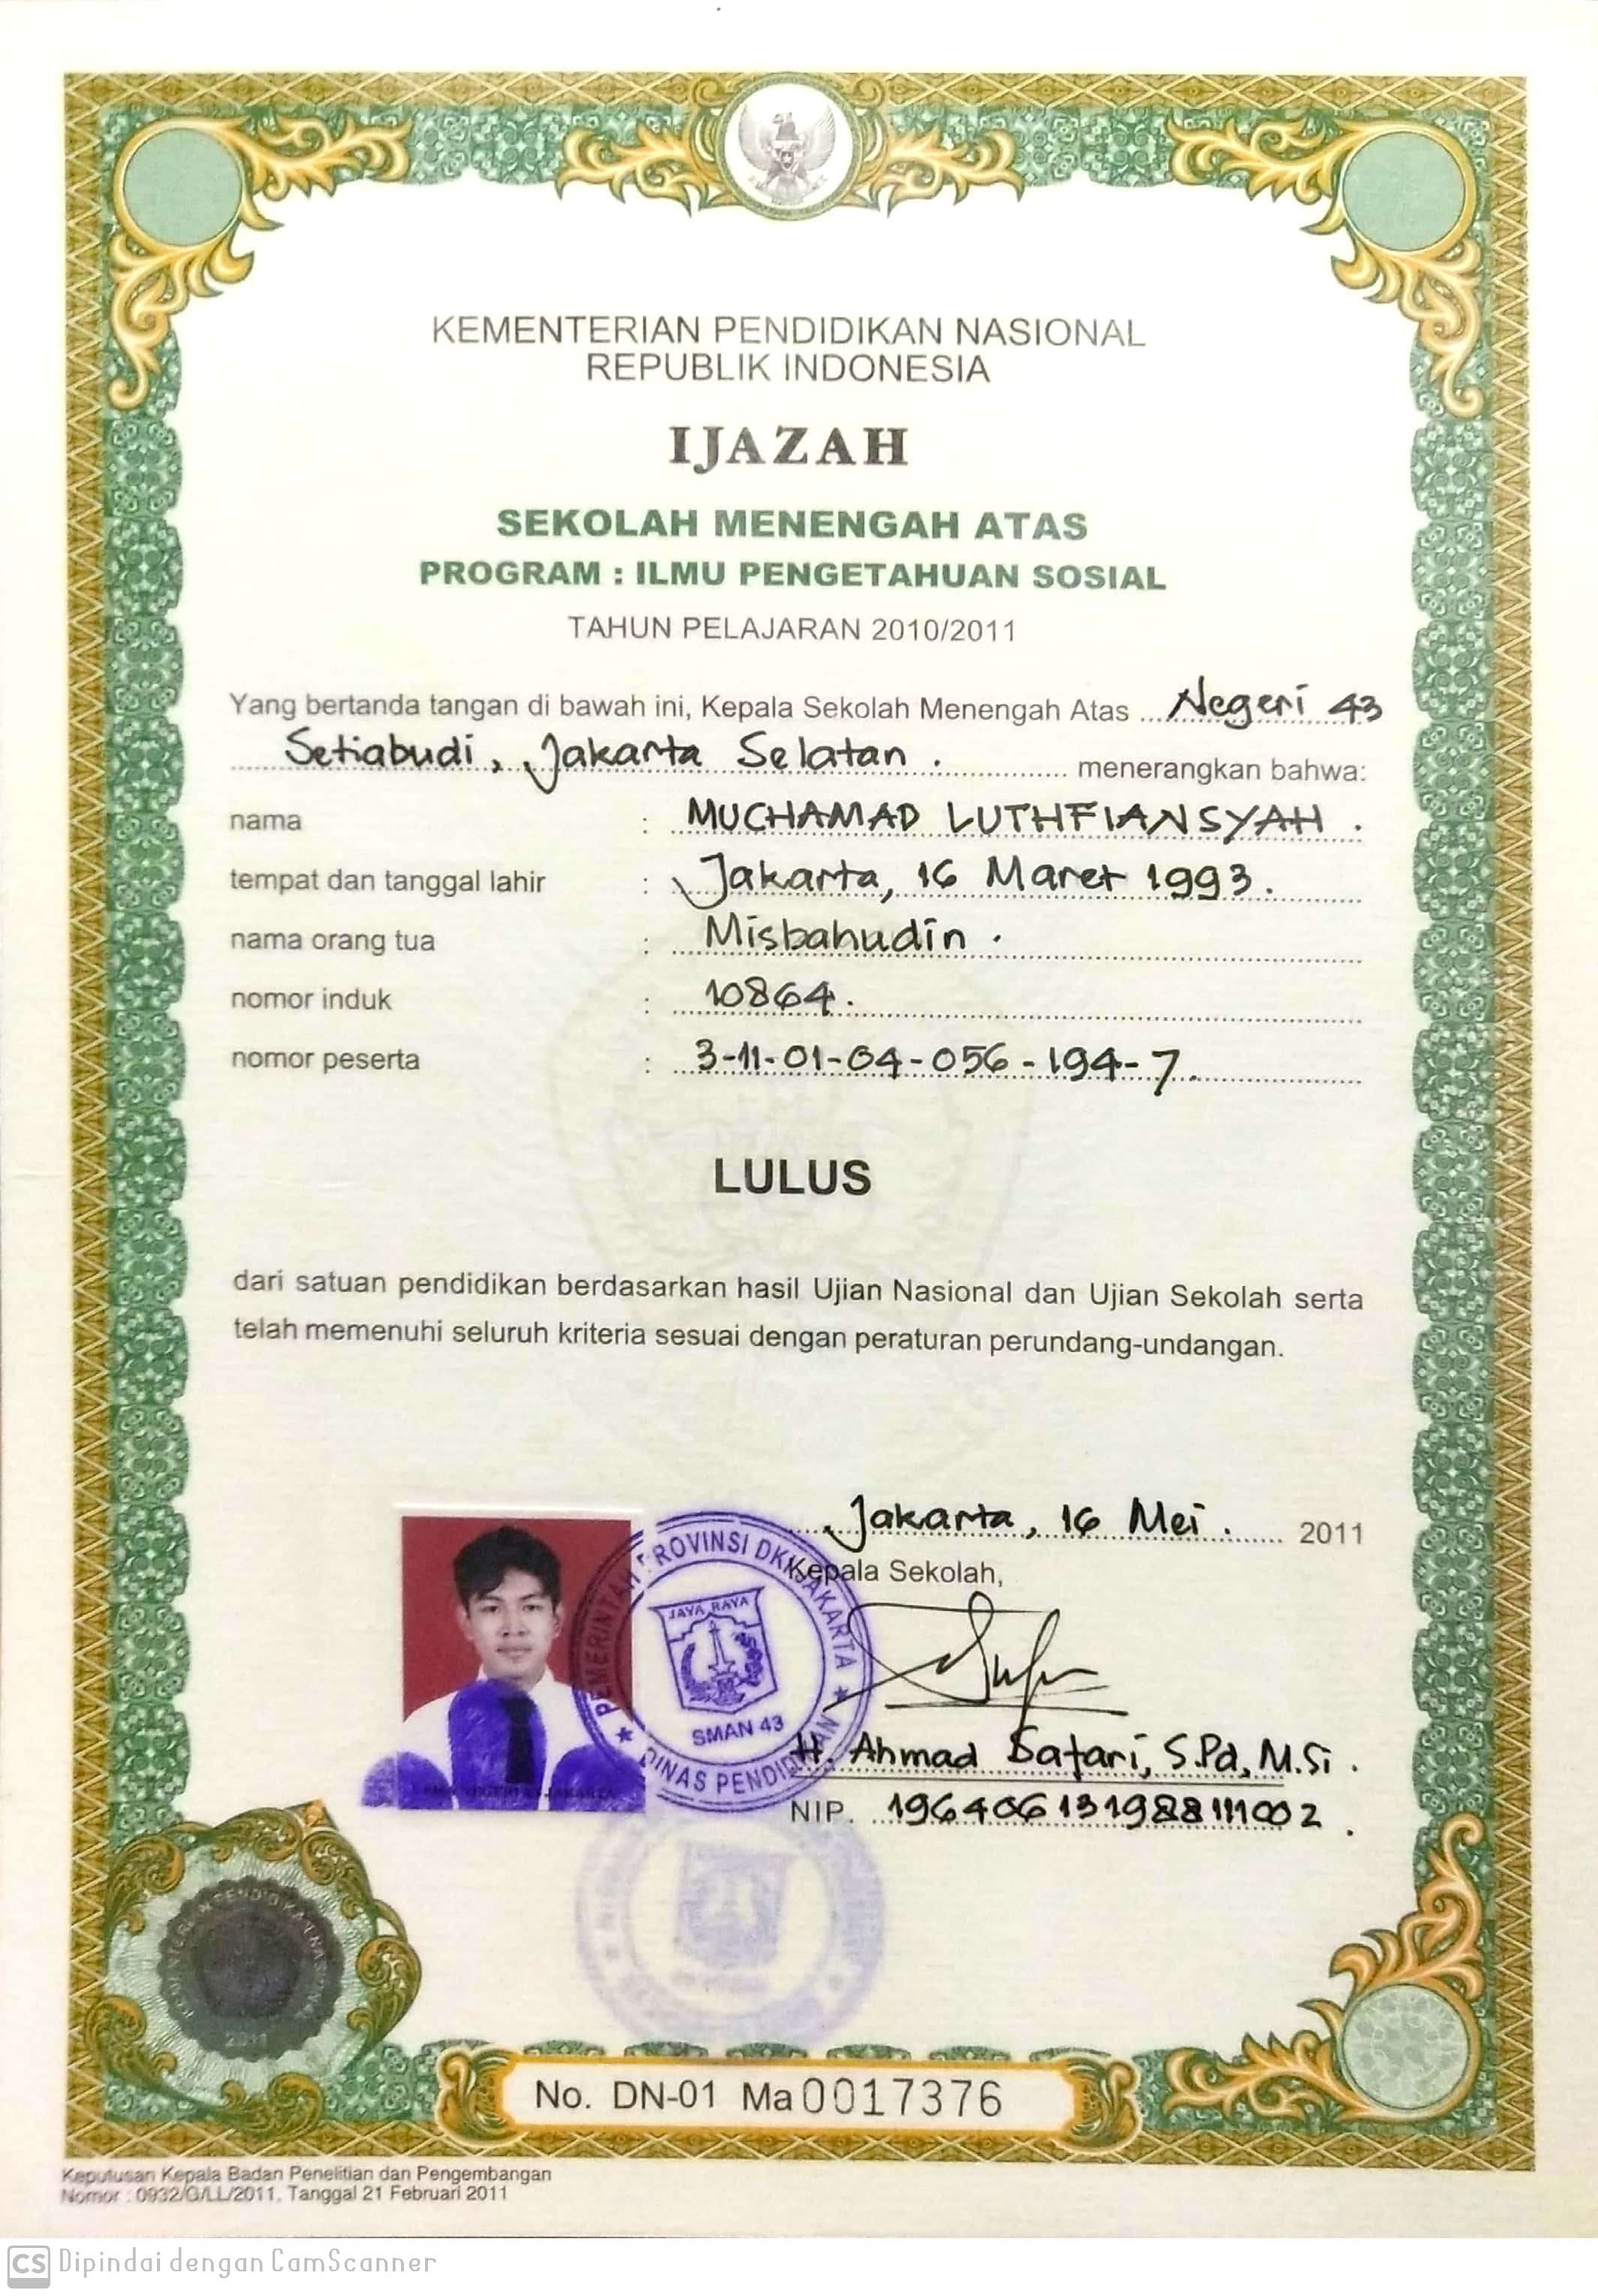 KEMENTERIAN PENDIDIKAN NASIONAL
REPUBLIK INDONESIA
IJAZAH
SEKOLAH MENENGAH ATAS
PROGRAM : ILMU PENGETAHUAN SOSIAL
TAHUN PELAJARAN 2010/2011
Yang bertanda tangan di bawah ini, Kepala Sekolah Menengah Atas Negeri 43
Setiabudi, Jakarta Selatan. menerangkan bahwa:
nama : MUCHAMAD LUTHFIANSYAH.
tempat dan tanggal lahir : Jakarta, 16 Maret 1993.
nama orang tua : Misbahudin.
nomor induk : 10864.
nomor peserta : 3-11-01-04-056-194-7.
LULUS
dari satuan pendidikan berdasarkan hasil Ujian Nasional dan Ujian Sekolah serta
telah memenuhi seluruh kriteria sesuai dengan peraturan perundang-undangan.
Jakarta, 16 Mei. 2011
Kepala Sekolah,
PEMERINTAH PROVINSI DKI JAKARTA
JAYA RAYA
SMAN 43
DINAS PENDIDIKAN
H. Ahmad Safari, S.Pd, M.Si.
NIP. 196406131988111002.
2011
No. DN-01 Ma 0017376
Keputusan Kepala Badan Penelitian dan Pengembangan
Nomor : 0932/G/LL/2011, Tanggal 21 Februari 2011
CS Dipindai dengan CamScanner